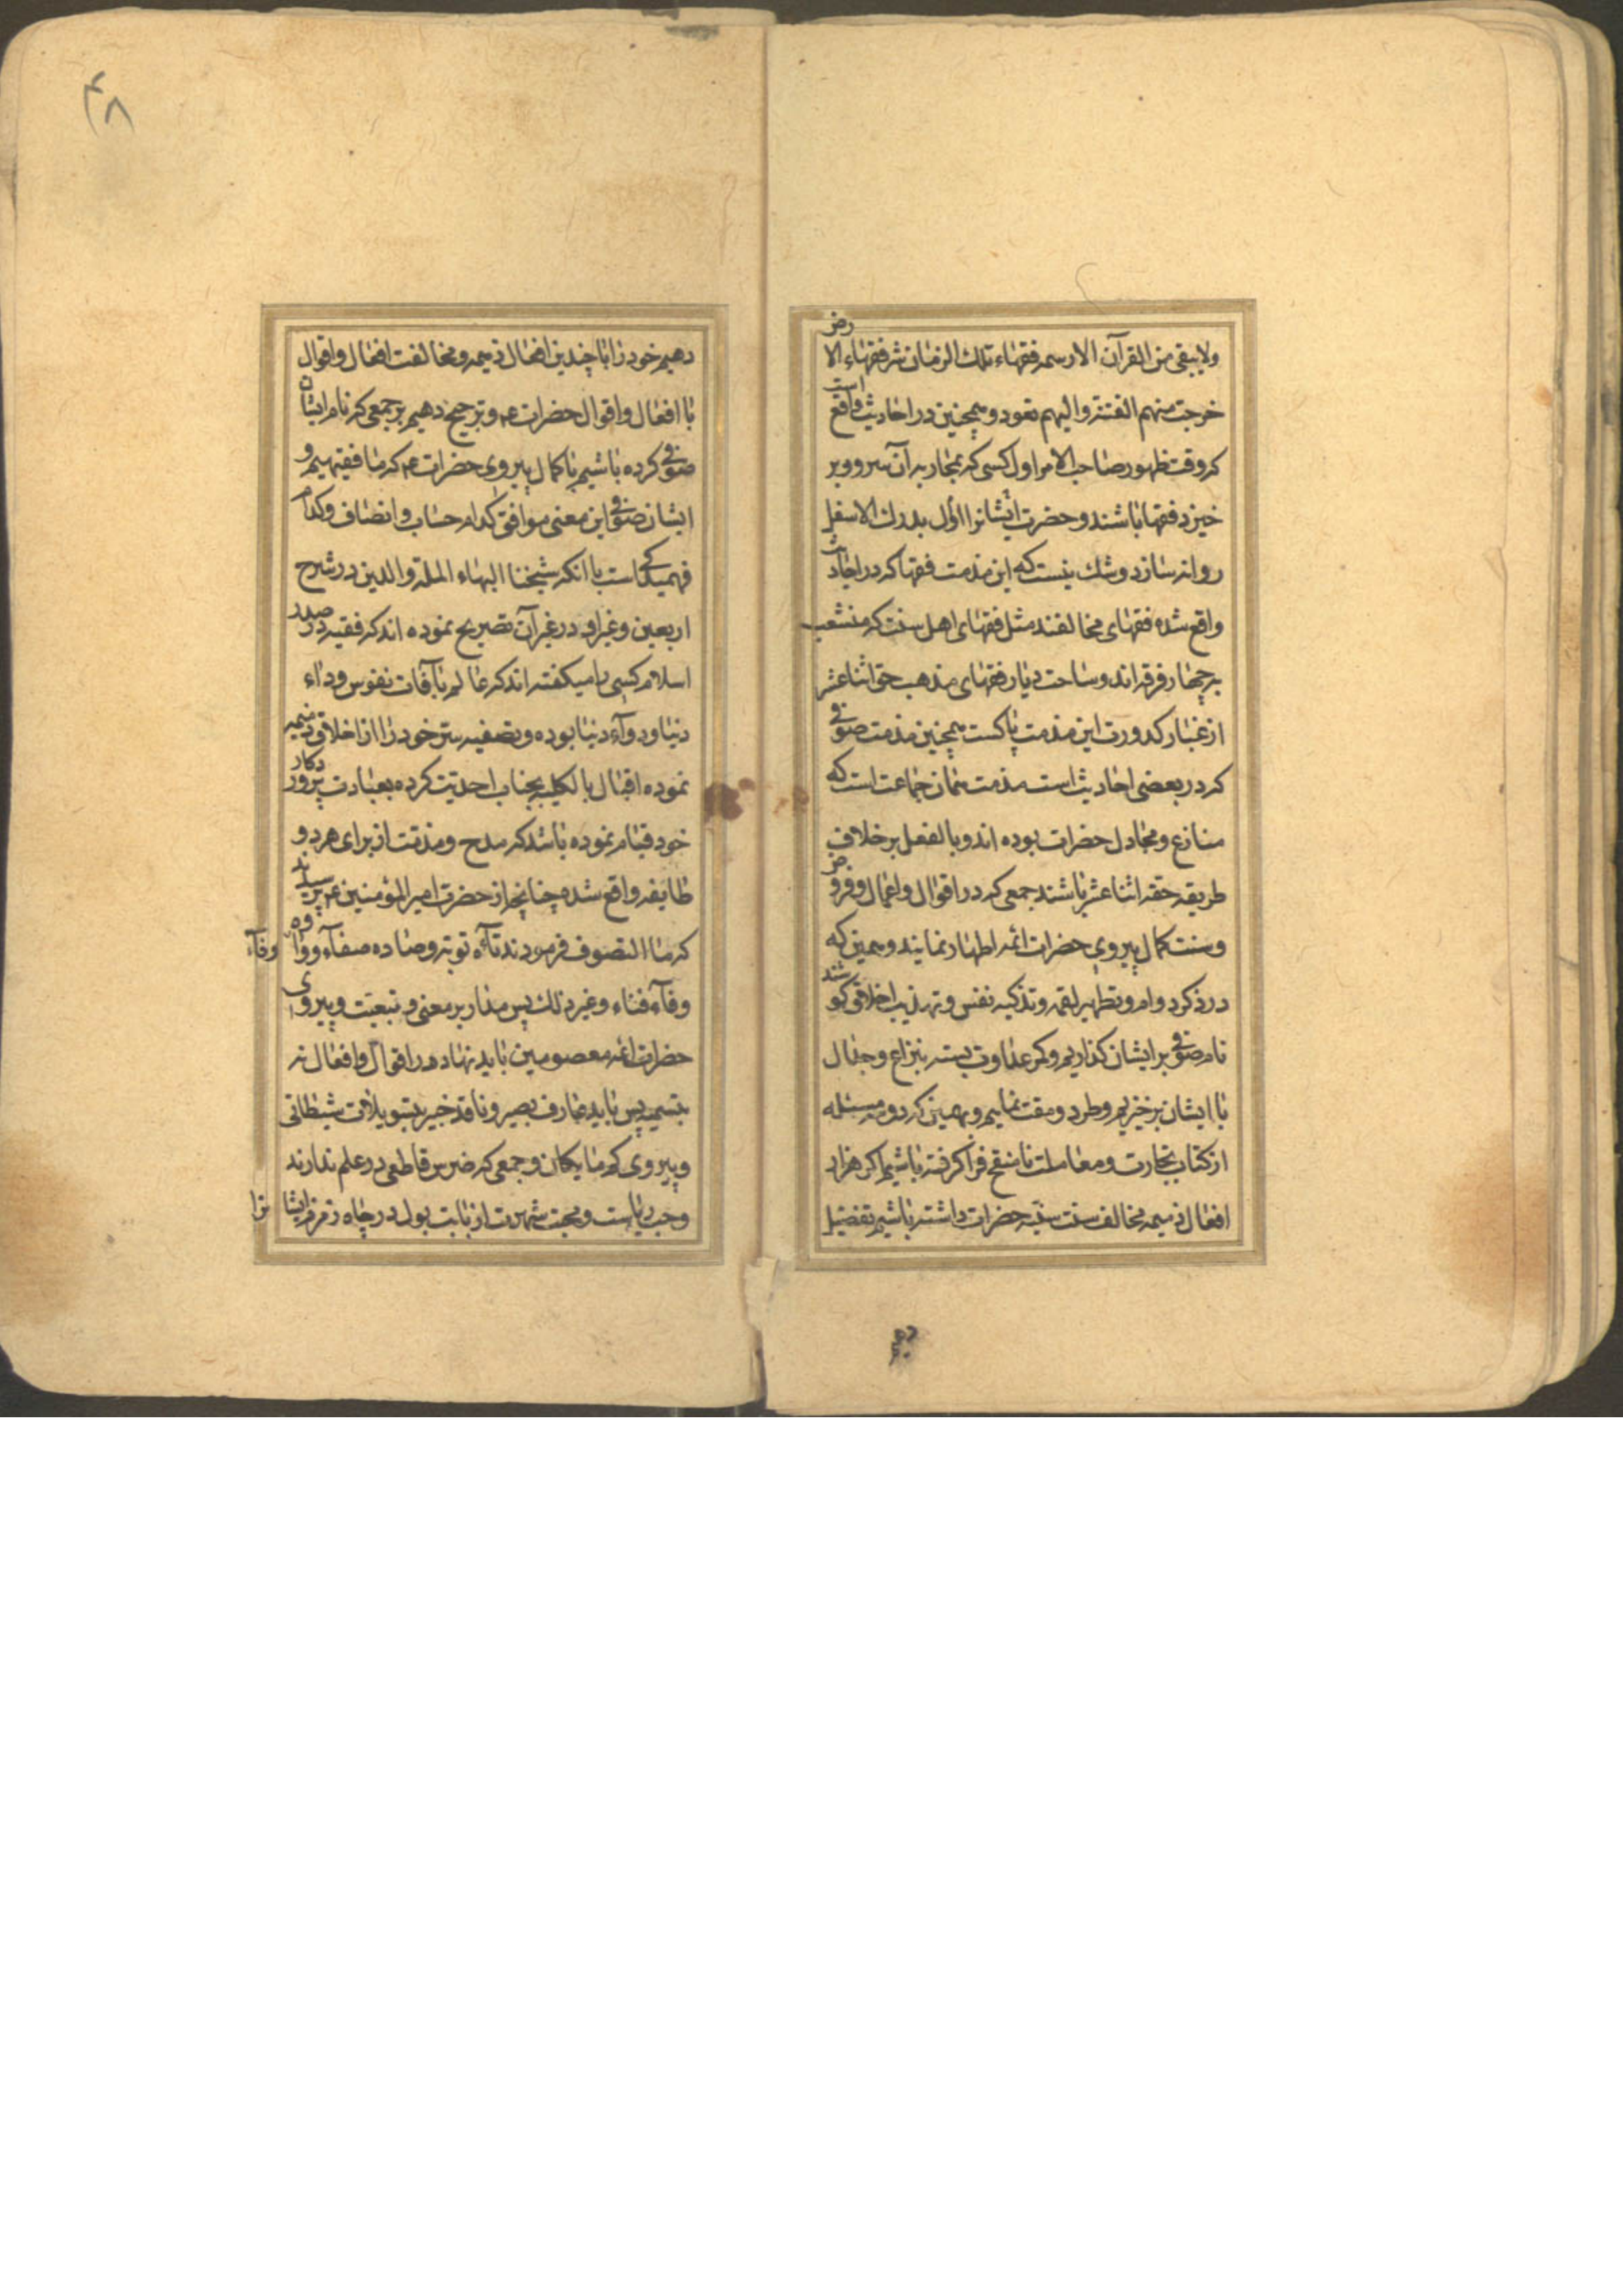 ولا یبقی من القرآن الا رسمه فقهاء تلک الزمان شر فقهاء الارض
خرجت منهم الفتنة و الیهم تعود و همچنین در احادیث واقع است
که وقت ظهور صاحب الامر اول کسی که بمحاربه آن سرور بر
خیزد فقها باشند و حضرت ایشانرا اول بدرک الاسفل
روانه سازد و شک نیست که این مذمت فقها که در احادیث
واقع شده فقهای مخالفند مثل فقهای اهل سنت که منشعب
بر چهار فرقه اند و ساحت دیار فقهای مذهب حق اثنا عشر
از غبار کدورت این مذمت پاکست همچنین مذمت صوفی
که در بعضی احادیث است مذمت همان جماعت است که
منازع و مجادل حضرات بوده اند و بالفعل بر خلاف
طریقه حقه اثنا عشر باشند جمعی که در اقوال و اعمال و فرض
و سنت کمال پیروی حضرات ائمه اطهار نمایند و همین که
در ذکر دوام و تطهیر لقمه و تذکیه نفس و تهذیب اخلاق کوشند
نام صوفی بر ایشان کذاریم و کمر عداوت بسته بنزاع و جدال
با ایشان برخیزیم و طرد و مقت نماییم و بهمین که دو مسئله
از کتاب تجارت و معاملت نامنقح فرا کرفته باشیم اکر هزار
افعال ذمیمه مخالف سنت سنیه حضرات داشته باشیم تفضیل
دهیم
۴۸
دهیم خود را با چندین افعال ذمیمه و مخالفت افعال و اقوال
با افعال و اقوال حضرات ع و ترجیح دهیم بر جمعی که نام ایشان
صوفی کرده باشیم با کمال پیروی حضرات ع که ما فقیهیم و
ایشان صوفی این معنی موافق کدام حساب و انصاف و کدام
فهمیدکی است با آنکه شیخنا البهاء الملة والدین در شرح
اربعین و غیر او در غیر آن تصریح نموده اند که فقیه در صدر
اسلام کسی را میکفته اند که عالم بآفات نفوس و داء
دنیا و دوآء دنیا بوده و تصفیه ستر خود را از اخلاق ذمیمه
نموده اقبال بالکلیه بجناب احدیت کرده بعبادت پروردکار
خود قیام نموده باشد که مدح و مذمت از برای هر دو
طایفه واقع شده چنانچه از حضرت امیر المؤمنین ع پرسیدند
که ما التصوف فرمودند تآء توبه و صاد صفآء و واو وفآء
وفآء فناء و غیر ذلک پس مدار بر معنی و تبعیت و پیروی
حضرات ائمه معصومین باید نهاد در اقوال و افعال نه
بتسمیه پس باید عارف بصیر و ناقد خبیر بتسویلات شیطانی
و پیروی کم مایکان و جمعی که ضرس قاطعی در علم ندارند
و حب ریاست و محبت شهرت از بابت بول در چاه زمزم ایشانرا